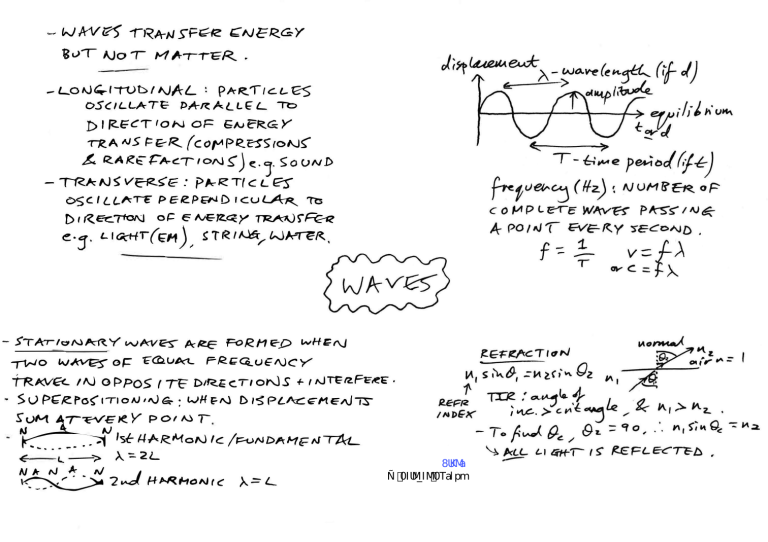 - WAVES TRANSFER ENERGY
BUT NOT MATTER.
- LONGITUDINAL: PARTICLES
OSCILLATE PARALLEL TO
DIRECTION OF ENERGY
TRANSFER (COMPRESSIONS
& RAREFACTIONS) e.g. SOUND
- TRANSVERSE: PARTICLES
OSCILLATE PERPENDICULAR TO
DIRECTION OF ENERGY TRANSFER
e.g. LIGHT (EM), STRING, WATER.
displacement
λ - wavelength (if d)
amplitude
equilibrium
t or d
T - time period (if t)
frequency (Hz): NUMBER OF
COMPLETE WAVES PASSING
A POINT EVERY SECOND.
f = 1/T v = fλ
or c = fλ
WAVES
- STATIONARY WAVES ARE FORMED WHEN
TWO WAVES OF EQUAL FREQUENCY
TRAVEL IN OPPOSITE DIRECTIONS + INTERFERE.
- SUPERPOSITIONING: WHEN DISPLACEMENTS
SUM AT EVERY POINT.
- N A N 1st HARMONIC/FUNDAMENTAL
L λ = 2L
N A N A N 2nd HARMONIC λ = L
REFRACTION
n₁ sin θ₁ = n₂ sin θ₂
REFR
INDEX
normal
θ₂ n₂
air n = 1
n₁ θ₁
TIR: angle of
inc. > crit angle, & n₁ > n₂.
- To find θc, θ₂ = 90, ∴ n₁ sin θc = n₂
↳ ALL LIGHT IS REFLECTED.